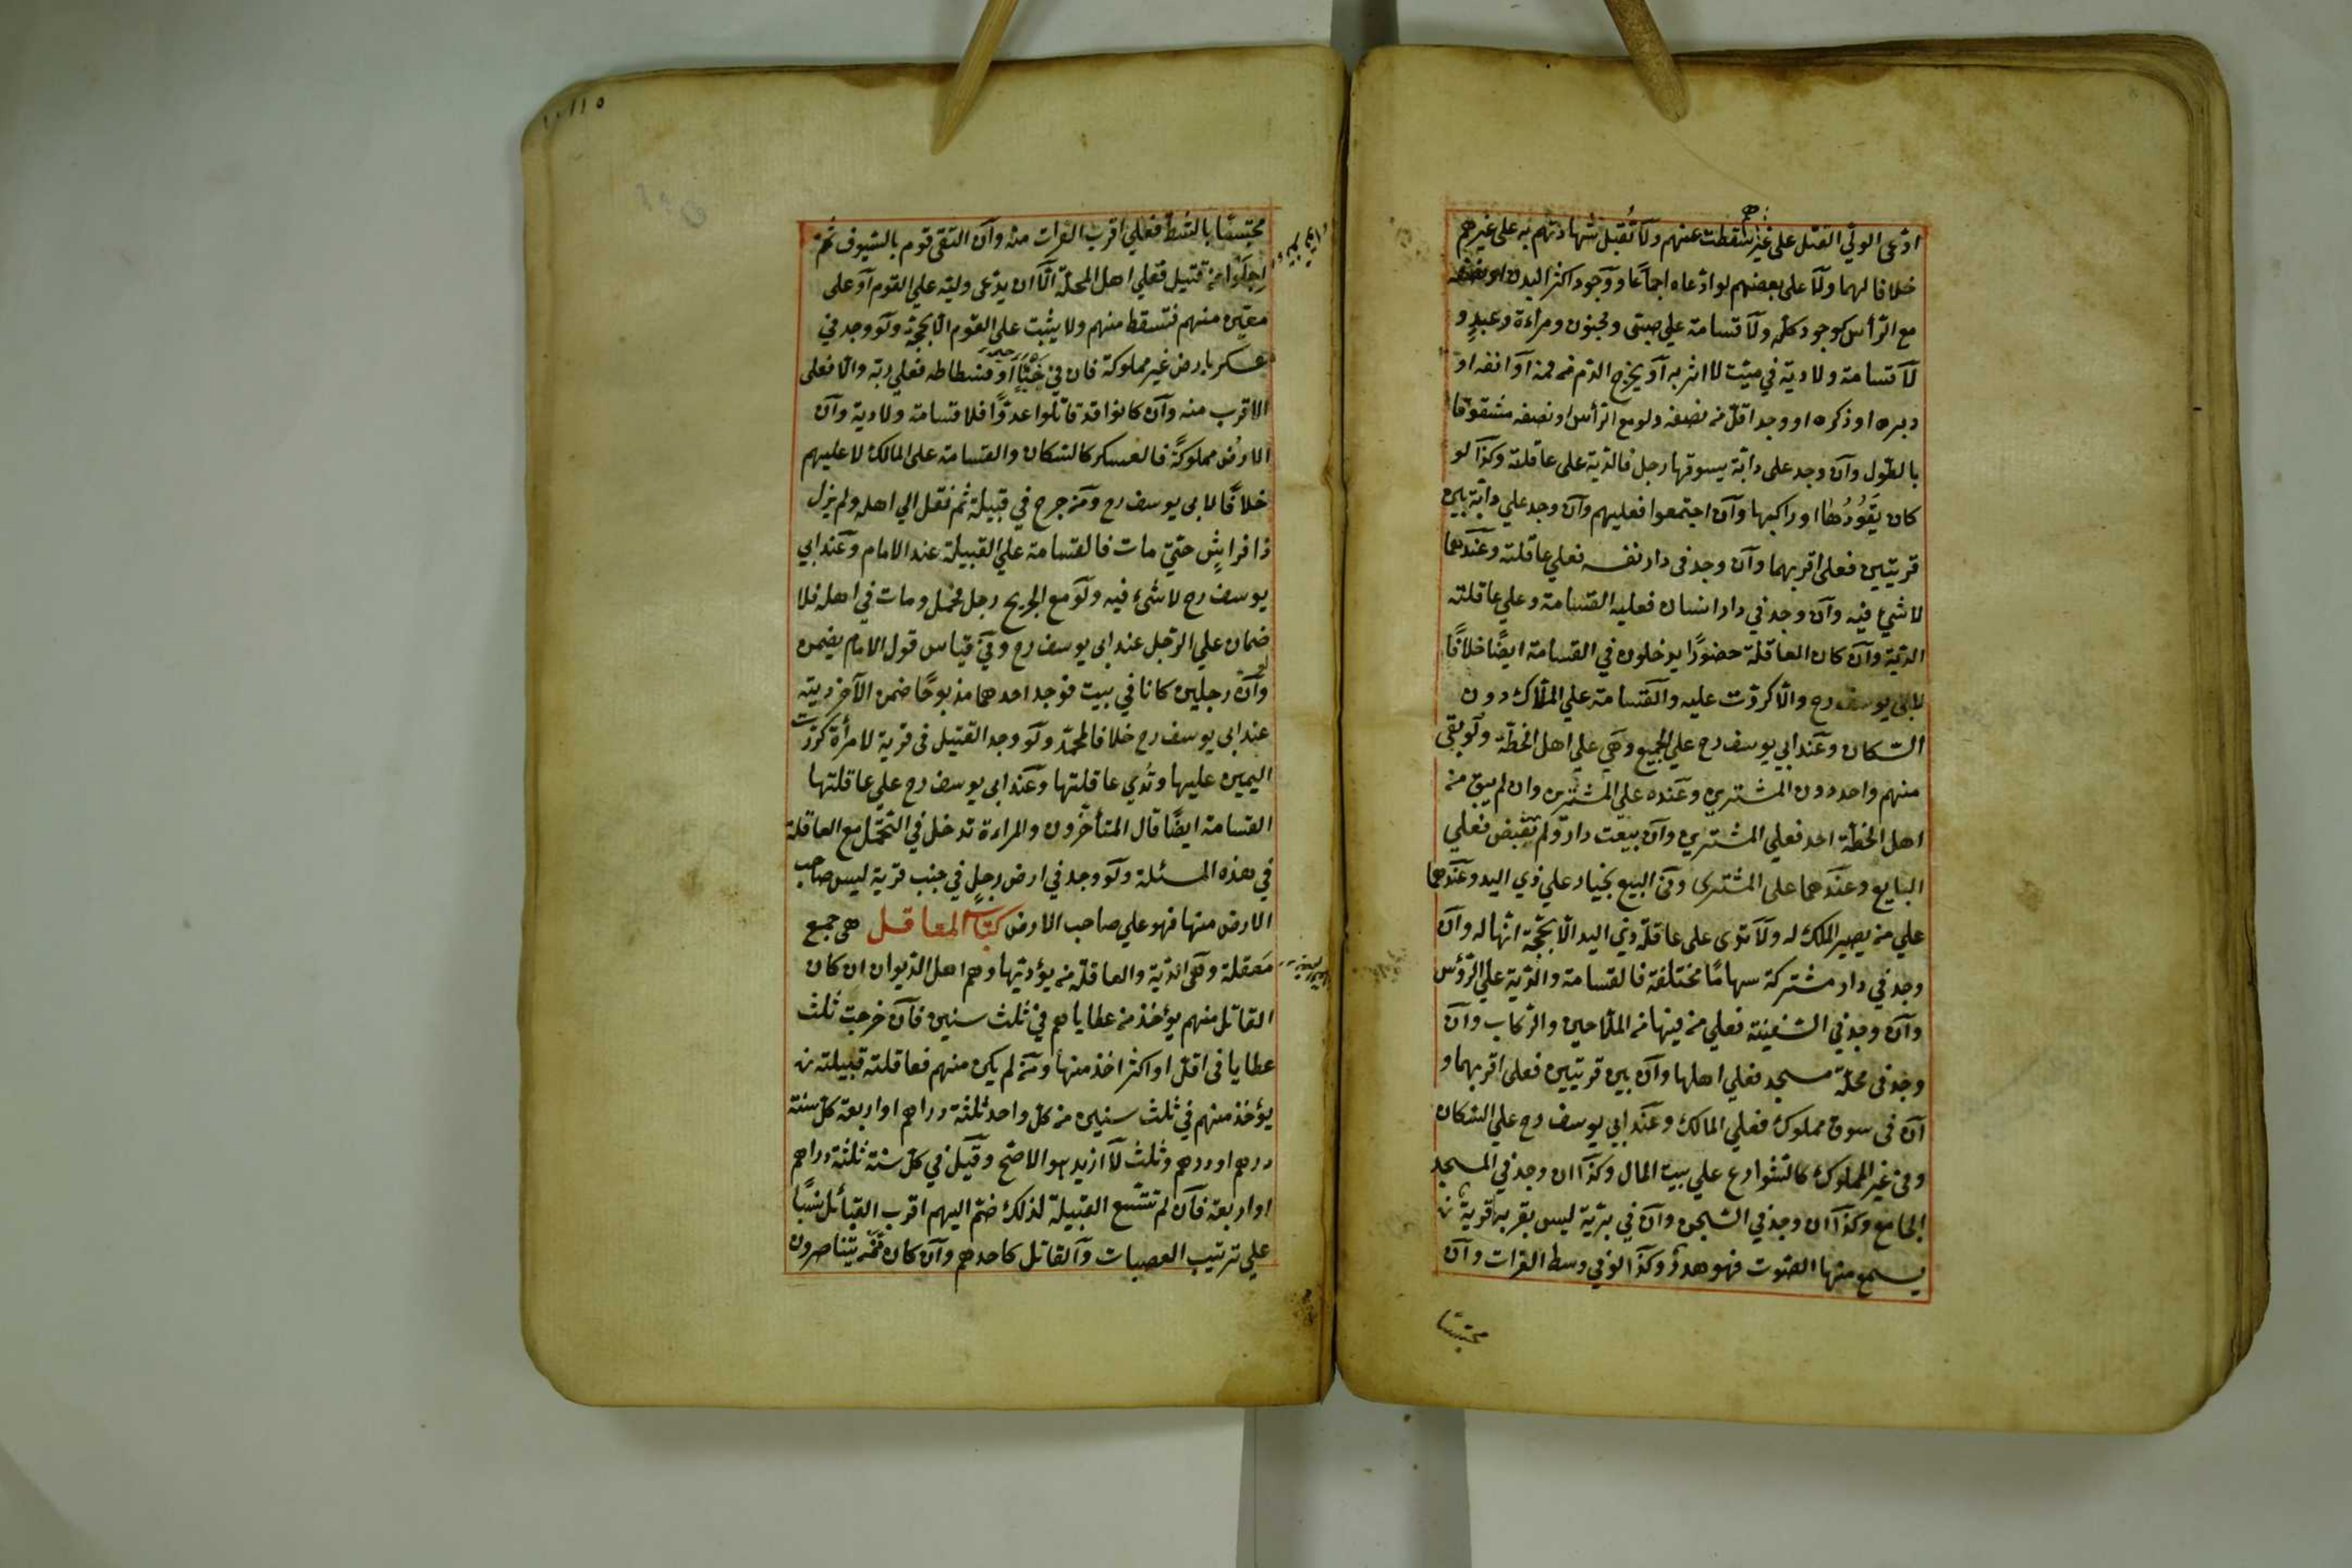 ادّعى الولي القتل على غيرهم سقطت عنهم ولا تُقبل شهادتهم به على غيرهم
خلافا لهما ولا على بعضهم لو ادّعاه اجماعا ووجود اكثر البدن او نصفه
مع الرأس كوجود كلّه ولا قسامة علي صبيّ ومجنون ومراءة وعبدٍ و
لا قسامة ولا دية في ميّت لا اثر به او يخرج الدّم من فمه او انفه او
دبره او ذكره او وجد اقلّ من نصفه ولو مع الرأس او نصفه مشقوقا
بالطّول وان وجد على دابّة يسوقها رجل فالدّية على عاقلته وكذا لو
كان يَقُودُهٰا او راكبها وان اجتمعوا فعليهم وان وجد علي دابّة بين
قريتين فعلى اقربهما وان وجد فى دار نفسه فعلي عاقلته وعندهما
لا شئ فيه وان وجد في دار انسان فعليه القسامة وعلي عاقلته
الدّية وان كان العاقلة حضورًا يدخلون في القسامة ايضًا خلافًا
لابي يوسف رح والّا كرّرت عليه والقسامة علي الملّاك دون
السّكان وعند ابي يوسف رح علي الجميع وهي علي اهل الخطّة ولو بقي
منهم واحد دون المشترين وعنده علي المشترين وان لم يبق من
اهل الخطّة احد فعلي المشتري وان بيعت دار ولم تقبض فعلي
البايع وعندهما على المشترى وفي البيع بخيار علي ذي اليد وعندهما
علي من يصير الملك له ولا تؤدى على عاقلة ذي اليد الّا بحجّة انّها له وان
وجد في دار مشتركة سهامًا مختلفة فالقسامة والدّية علي الرّؤس
وان وجد في السّفينة فعلي من فيها من الملّاحين والرّكاب وان
وجد فى محلّة مسجد فعلي اهلها وان بين قريتين فعلى اقربهما و
ان فى سوق مملوك فعلي المالك وعند ابي يوسف رح علي السّكان
وفى غير المملوك كالشّوارع علي بيت المال وكذا ان وجد في المسجد
الجامع وكذا ان وجد في السّجن وان في برّية ليس بقربه قرية
يسمع منها الصّوت فهو هدرٌ وكذا لو في وسط الفرات وان
محتبسًا
محتبسًا بالشّطّ فعلي اقرب القرات منه وان التقى قوم بالسّيوف ثمّ
اجلَوا عن قتيل فعلي اهل المحلّة الّا ان يدّعى وليّه علي القوم او على
معيّن منهم فتسقط منهم ولا يثبت على القوم الّا بحجّة ولو وجد في
عسكر بارض غير مملوكة فان في خبًا او فسطاطه فعلي ربّه والّا فعلى
الاقرب منه وان كانوا قد قاتلوا عدوًّا فلا قسامة ولا دية وان
الارض مملوكةً فالعسكر كالسّكان والقسامة على المالك لا عليهم
خلافًا لابى يوسف رح ومن جرح في قبيلة ثم نقل الي اهله ولم يزل
ذا فراشٍ حتيّ مات فالقسامة علي القبيلة عند الامام وعند ابي
يوسف رح لا شئ فيه ولو مع الجريح رجل فحمل ومات في اهله فلا
ضمان علي الرّجل عند ابى يوسف رح وفي قياس قول الامام يضمن
ولو ان رجلين كانا في بيت فوجد احدهما مذبوحًا ضمن الآخر ديته
عند ابى يوسف رح خلافا لمحمّد ولو وجد القتيل فى قرية لامرأة كرّرت
اليمين عليها وتَدي عاقلتها وعند ابى يوسف رح علي عاقلتها
القسامة ايضًا قال المتأخّرون والمراءة تدخل في التّحمّل مع العاقلة
في هذه المسئلة ولو وجد في ارض رجلٍ في جنب قرية ليس صاحب
الارض منها فهو علي صاحب الارض كتاب المعاقل هى جمع
مَعقلة وهى الدّية والعاقلة من يؤدّيها وهم اهل الدّيوان ان كان
القاتل منهم يؤخذ من عطاياهم في ثلث سنين فان خرجت ثلث
عطايا فى اقلّ او اكثر اخذ منها ومن لم يكن منهم فعاقلته قبيلته
يؤخذ منهم في ثلث سنين من كلّ واحد ثلثة دراهم او اربعة كلّ سنة
درهم او درهم وثلث لا ازيد هو الاصحّ وقيل في كلّ سنة ثلثة دراهم
او اربعة فان لم تتّسع القبيلة لذلك ضمّ اليهم اقرب القبائل نسبًا
علي ترتيب العصبات والقاتل كاحدهم وان كان ممّن يتناصرون